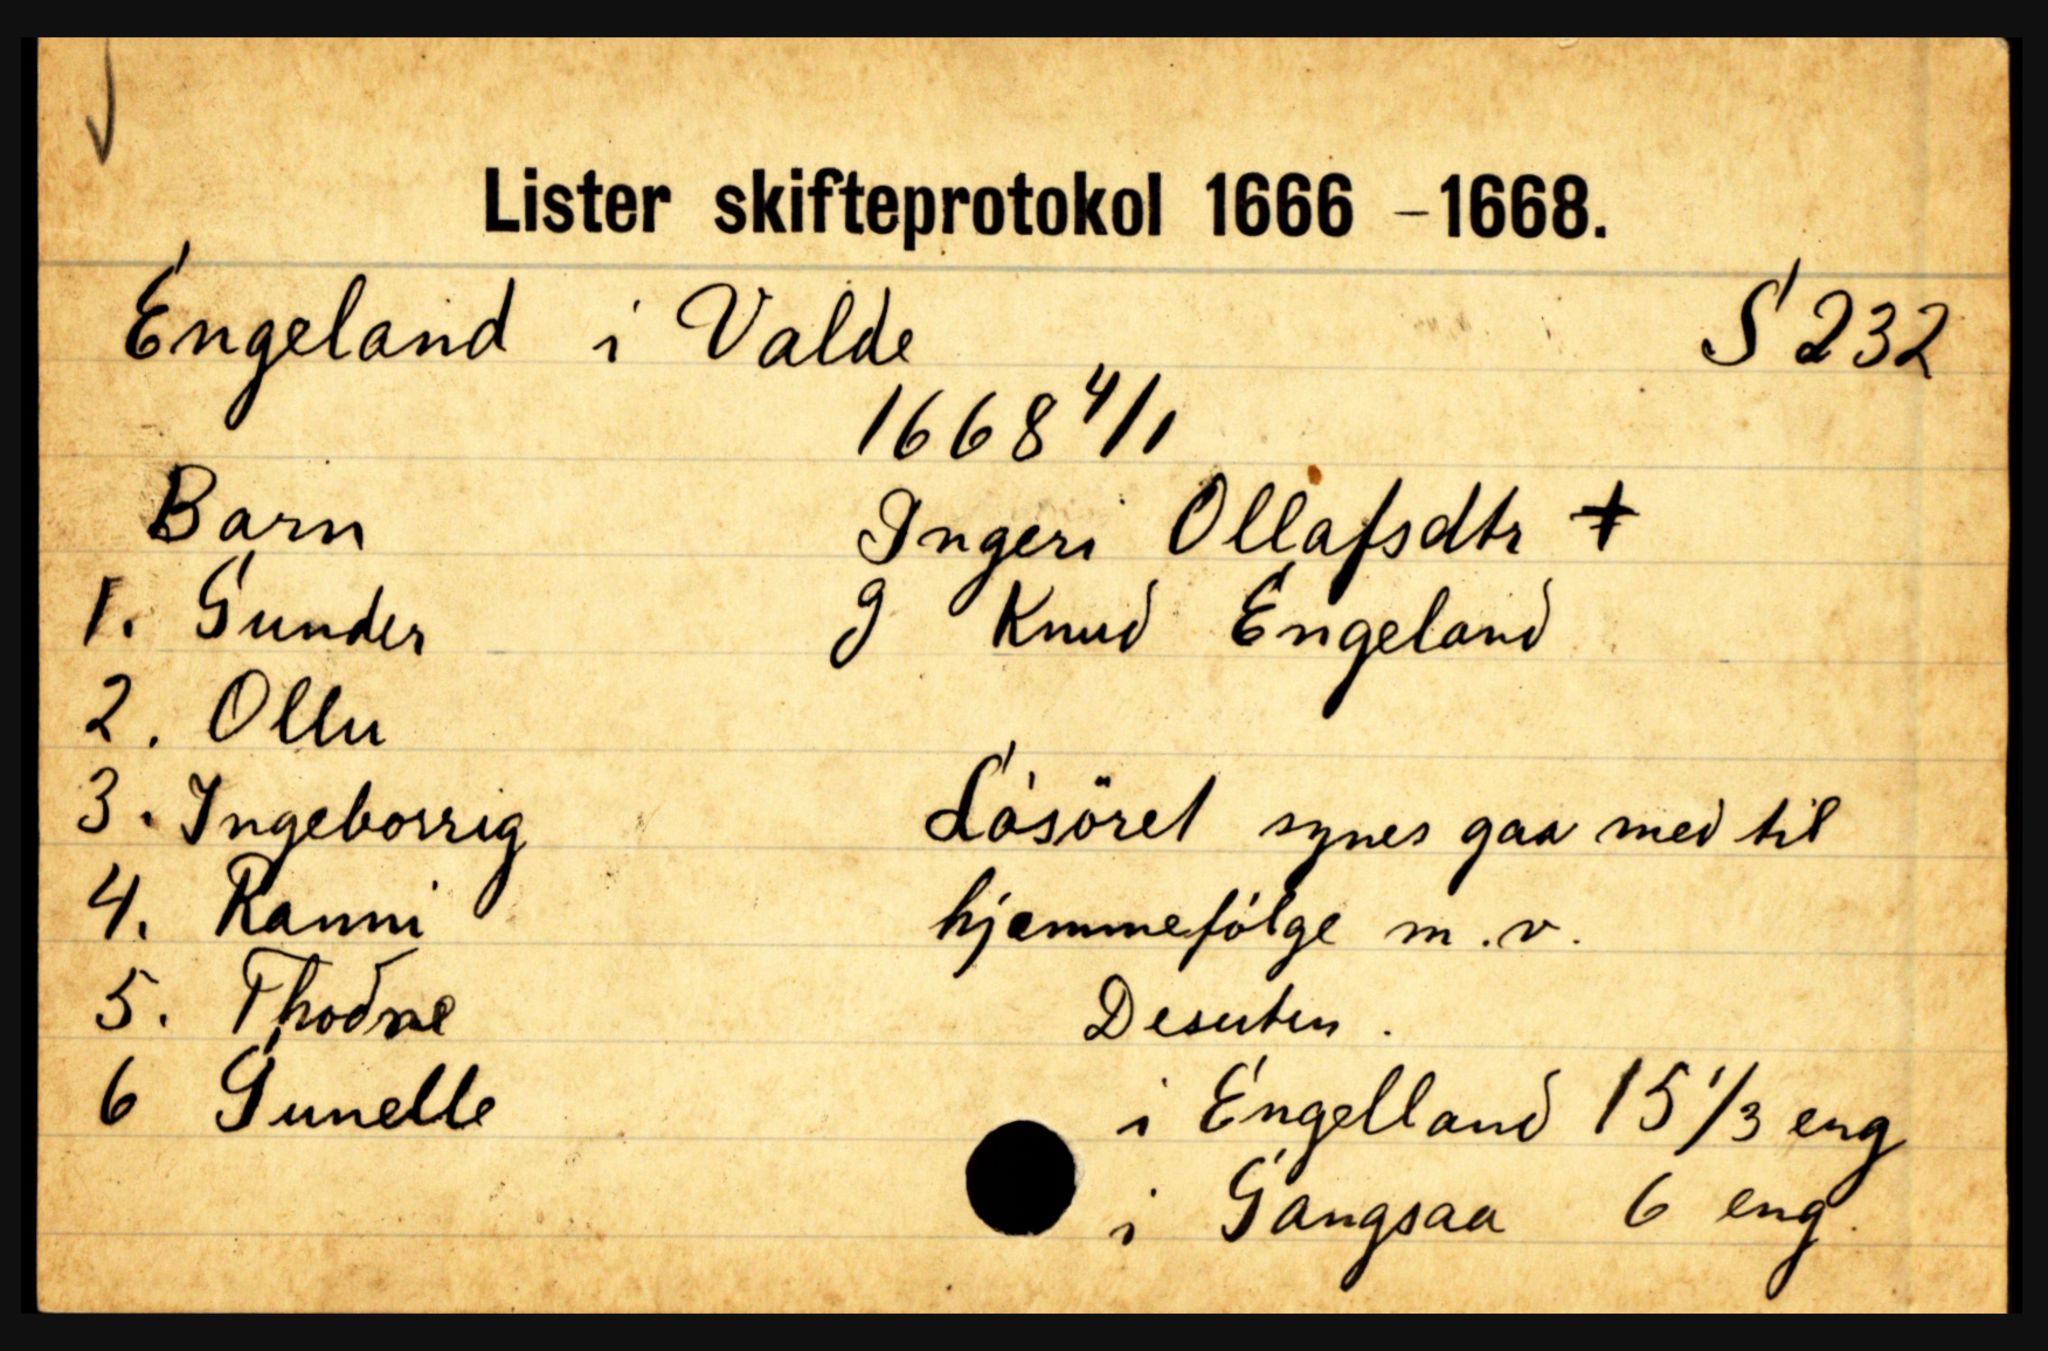 Lister skifteprotokol 1666 – 1668.
Engeland i Valde S 232
1668 4/1
Barn Ingeri Ollafsdtr +
1. Gunder g Knud Engeland
2. Ollu
3. Ingeborrig Lösöret synes gaa med til
4. Ranni hjemmefölge m.v.
5. Thodne Desuten.
6 Gunelle i Engelland 15 1/3 eng
i Gangsaa 6 eng.